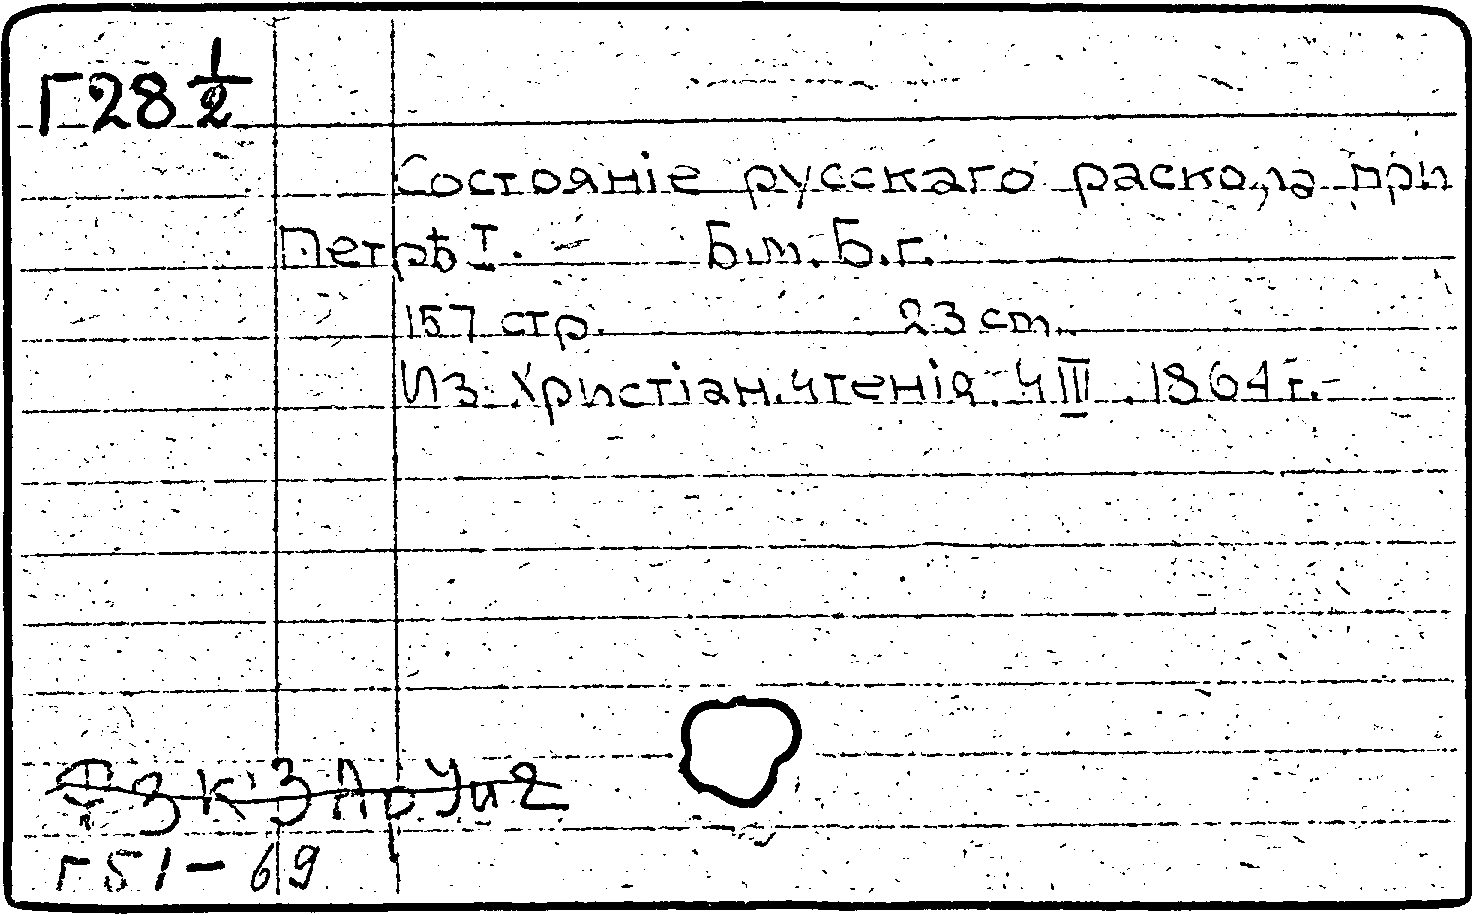 Г28 1/2
Состояніе русскаго раскола при
Петрѣ I. — Б.м. Б.г.
157 стр. 23 cm.
Из. Христіан. чтенія. Ч III. 1864 г.-
Г51-69